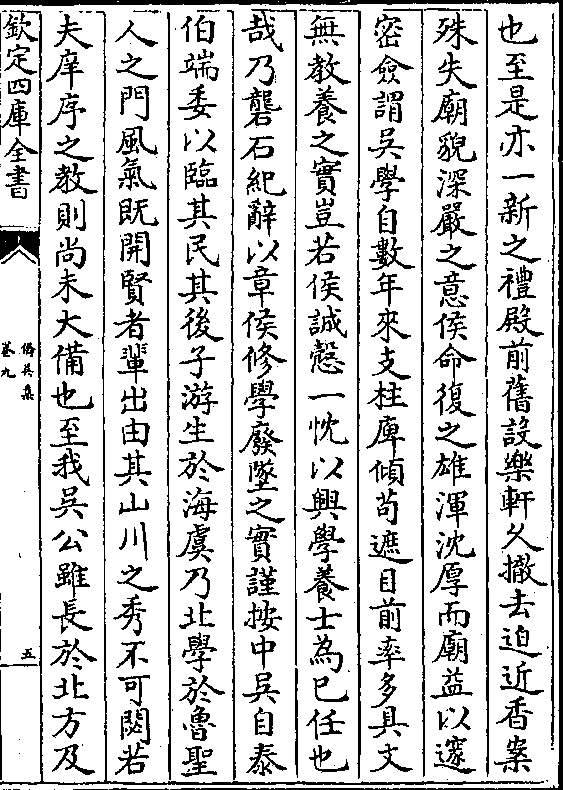 也至是亦一新之禮殿前舊設樂軒久撤去迫近香案
殊失廟貌深嚴之意侯命復之雄渾沈厚而廟益以邃
密僉謂吳學自數年來支柱庳傾苟遮目前率多具文
無教養之實豈若侯誠慤一忱以興學養士為已任也
哉乃礱石紀辭以章侯修學廢墜之實謹按中吳自泰
伯端委以臨其民其後子游生於海虞乃北學於魯聖
人之門風氣既開賢者輩出由其山川之秀不可閟若
夫庠序之教則尚未大備也至我吳公雖長於北方及
欽定四庫全書
僑吳集
卷九
五